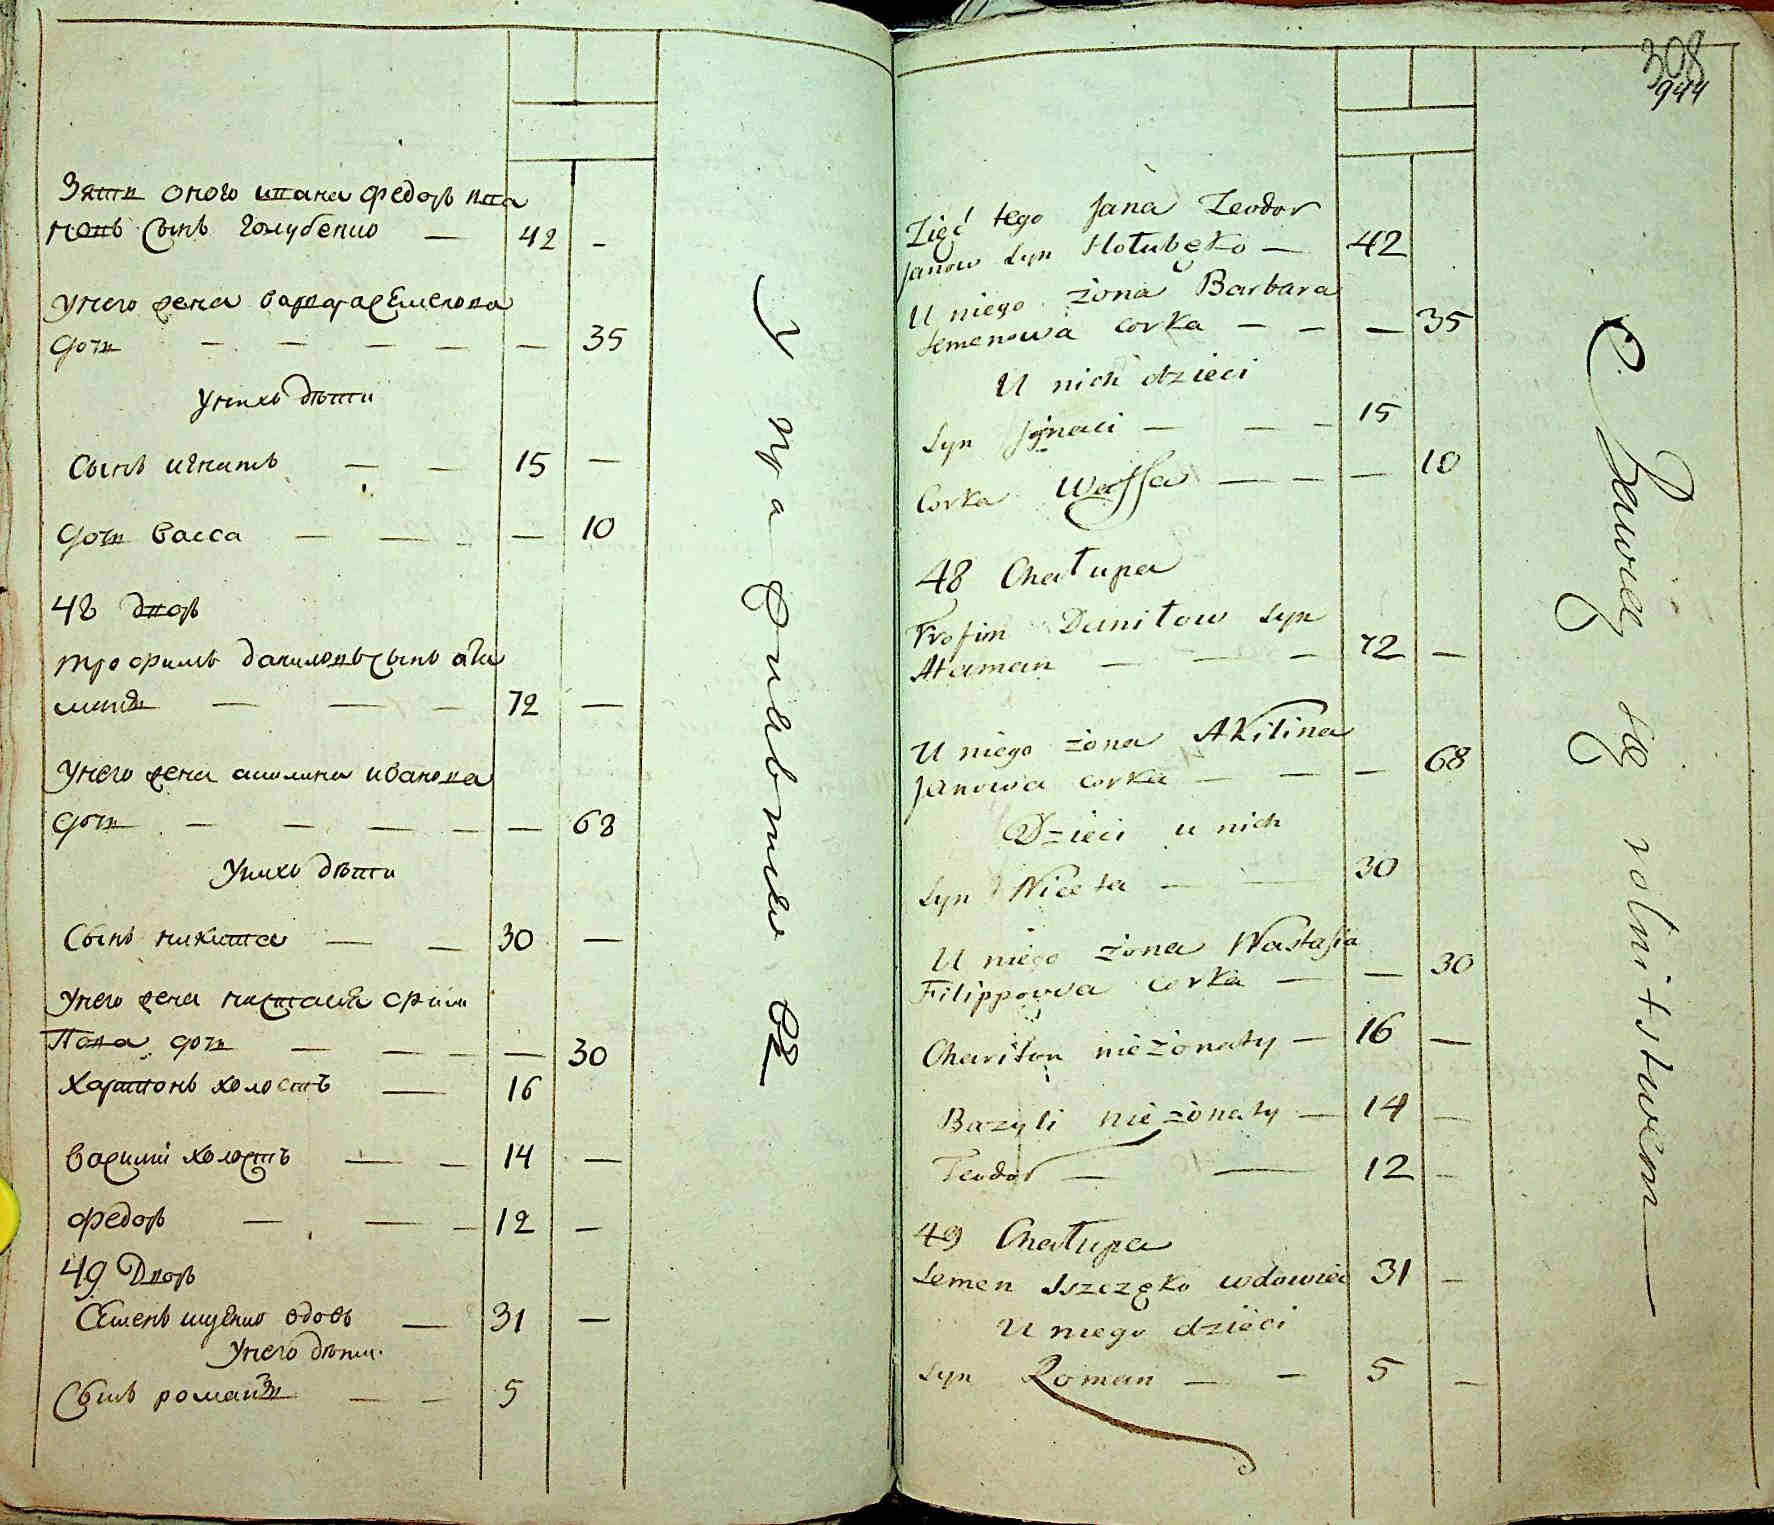 Зять оного ивана федоръ ива
новъ сынъ голубенко — 42 —
унего жена варвара семенова
дочь — — — — — 35
унихъ дѣти
сынъ игнатъ — — 15 —
дочь васса — — — — 10
48 дворъ
трофимъ даниловъ сынъ ата
манъ — — — 72 —
унего жена акилина иванова
дочь — — — — — 68
унихъ дѣти
сынъ никита — — 30 —
унего жена настасия фили
пова дочь — — — — 30
харитонъ холостъ — 16
василий холостъ — — 14 —
федоръ — — — 12 —
49 Дворъ
Семенъ ищенко вдовъ — 31 —
унего дѣти
Сынъ романъ — — 5
308
944
Zięć tego Jana Teodor
Janow Syn Hołubęko — 42
U niego żona Barbara
Semenowa corka — — — 35
U nich dzieci
Syn Jgnaci — — — 15
Corka Wassa — — — 10
48 Chałupa
Trofim Daniłow Syn
Ataman — — — 72 —
U niego żona Akilina
Janowa corka — — — 68
Dzieci u nich
Syn Niceta — — 30
U niego żona Nastasia
Filippowa corka — — 30
Chariton nieżonaty — 16 —
Bazyli nieżonaty — 14 —
Teodor — — 12 —
49 Chałupa
Semen Iszczęko wdowiec 31 —
U niego dzieci
Syn Roman — — 5 —
Bawią się rolnitstwem